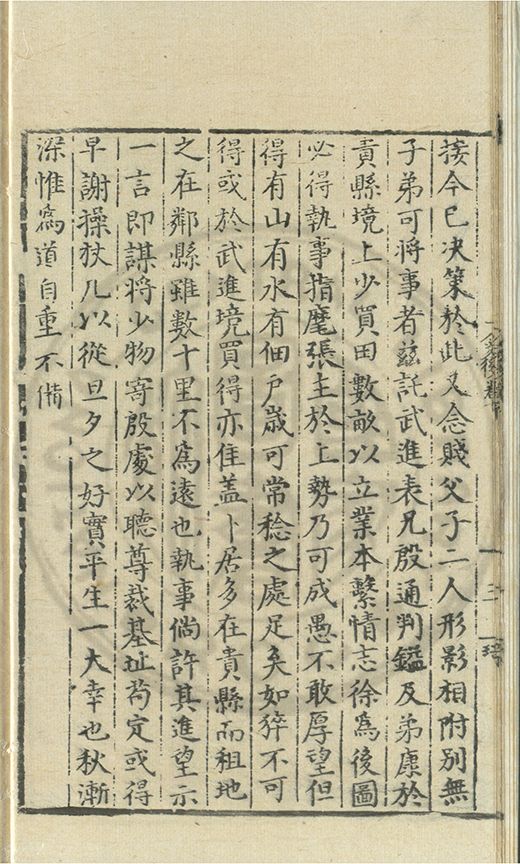 接今已决策於此又念賤父子二人形影相附別無
子弟可將事者兹託武進表兄殷通判鎰及弟康於
貴縣境上少買田數畝以立業本繫情志徐為後圖
必得執事指麾張主於上勢乃可成愚不敢厚望但
得有山有水有佃戶歲可常稔之處足矣如猝不可
得或於武進境買得亦佳盖卜居多在貴縣而租地
之在鄰縣雖數十里不為遠也執事倘許其進望示
一言即謀將少物寄殷處以聽尊裁基址茍定或得
早謝操杖几以從旦夕之好實平生一大幸也秋漸
深惟為道自重不備